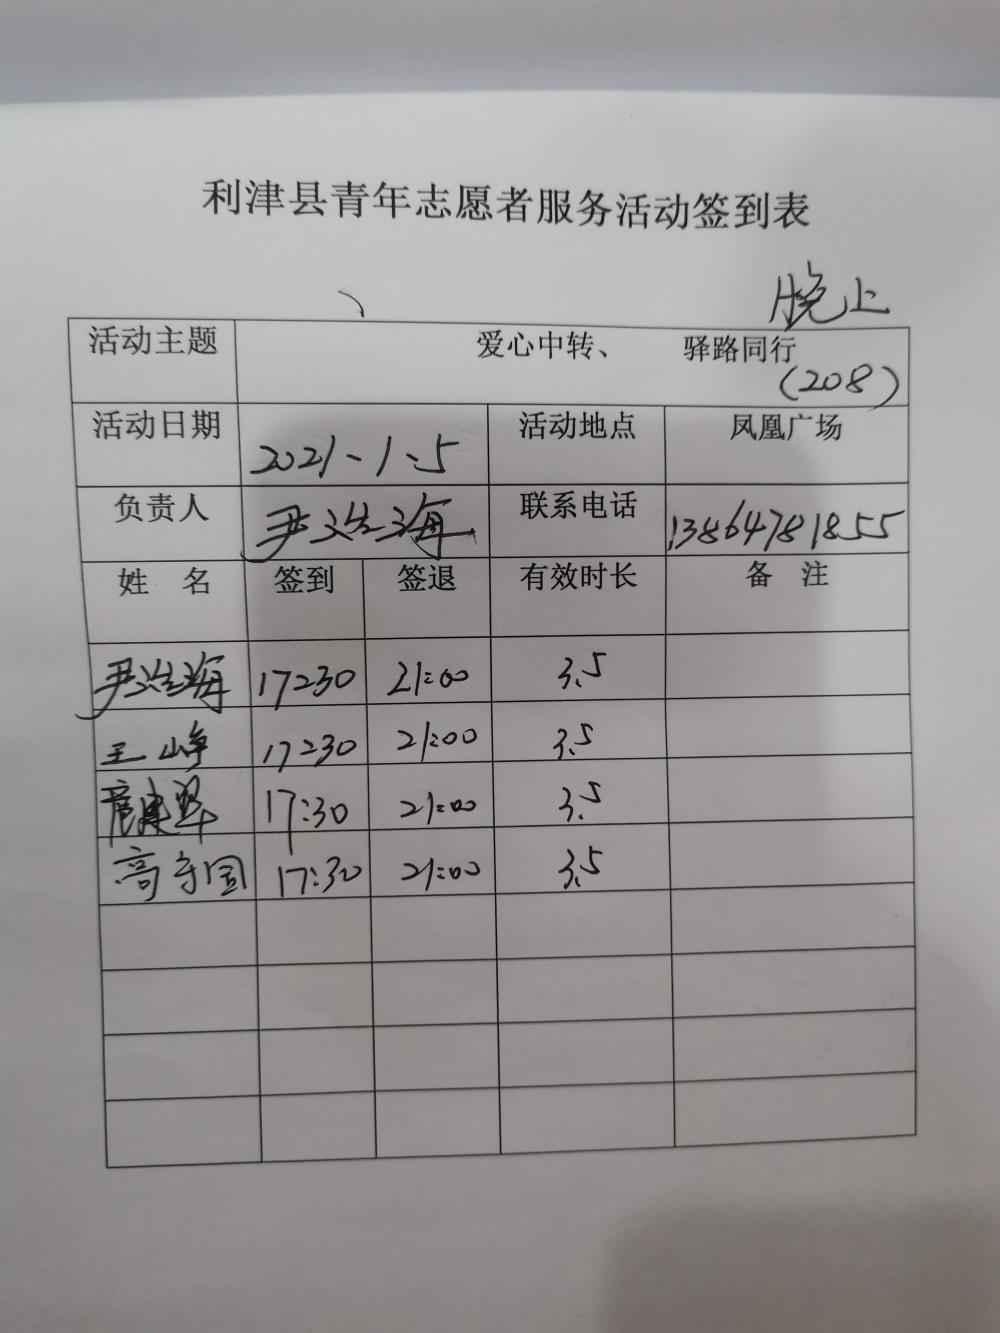 利津县青年志愿者服务活动签到表
晚上
活动主题 爱心中转、 驿路同行
(208)
活动日期 2021、1、5 活动地点 凤凰广场
负责人 尹 海 联系电话 13864781855
姓 名 签到 签退 有效时长 备 注
尹 海 17:30 21:00 3.5
王峥 17:30 21:00 3.5
17:30 21:00 3.5
高守国 17:30 21:00 3.5